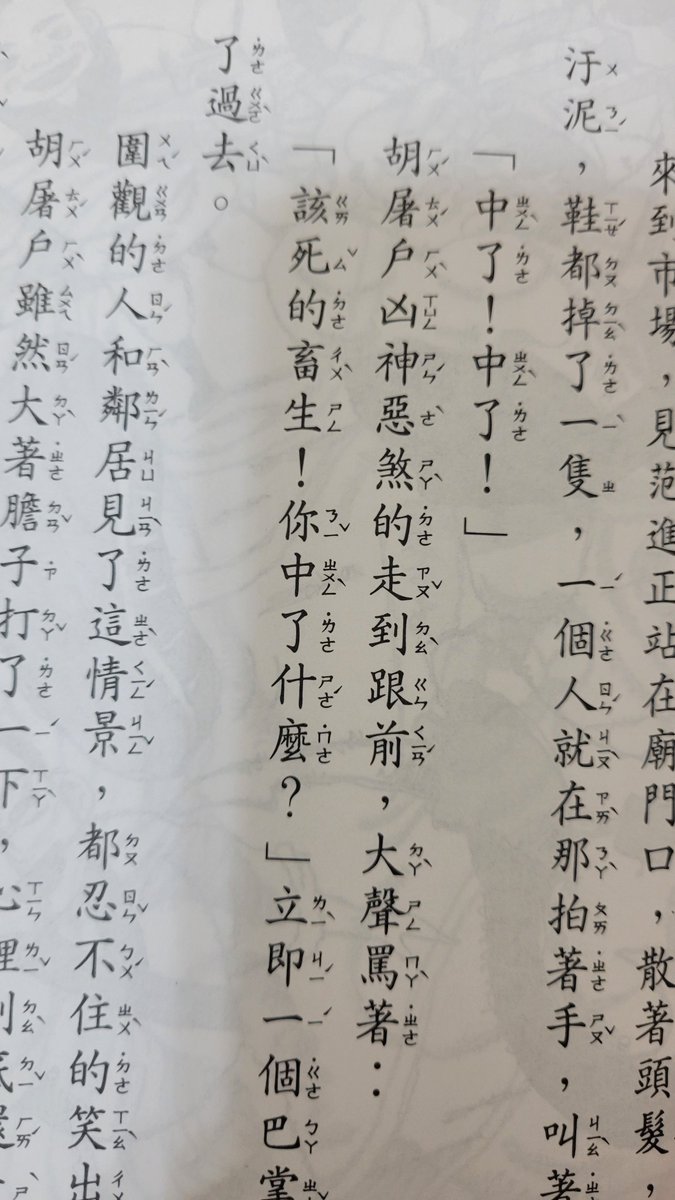 來到市場，見范進正站在廟門口，散著頭髮，
汙泥，鞋都掉了一隻，一個人就在那拍著手，叫著
「中了！中了！」
胡屠戶凶神惡煞的走到跟前，大聲罵著：
「該死的畜生！你中了什麼？」立即一個巴掌
了過去。
圍觀的人和鄰居見了這情景，都忍不住的笑出
胡屠戶雖然大著膽子打了一下，心裡到底還